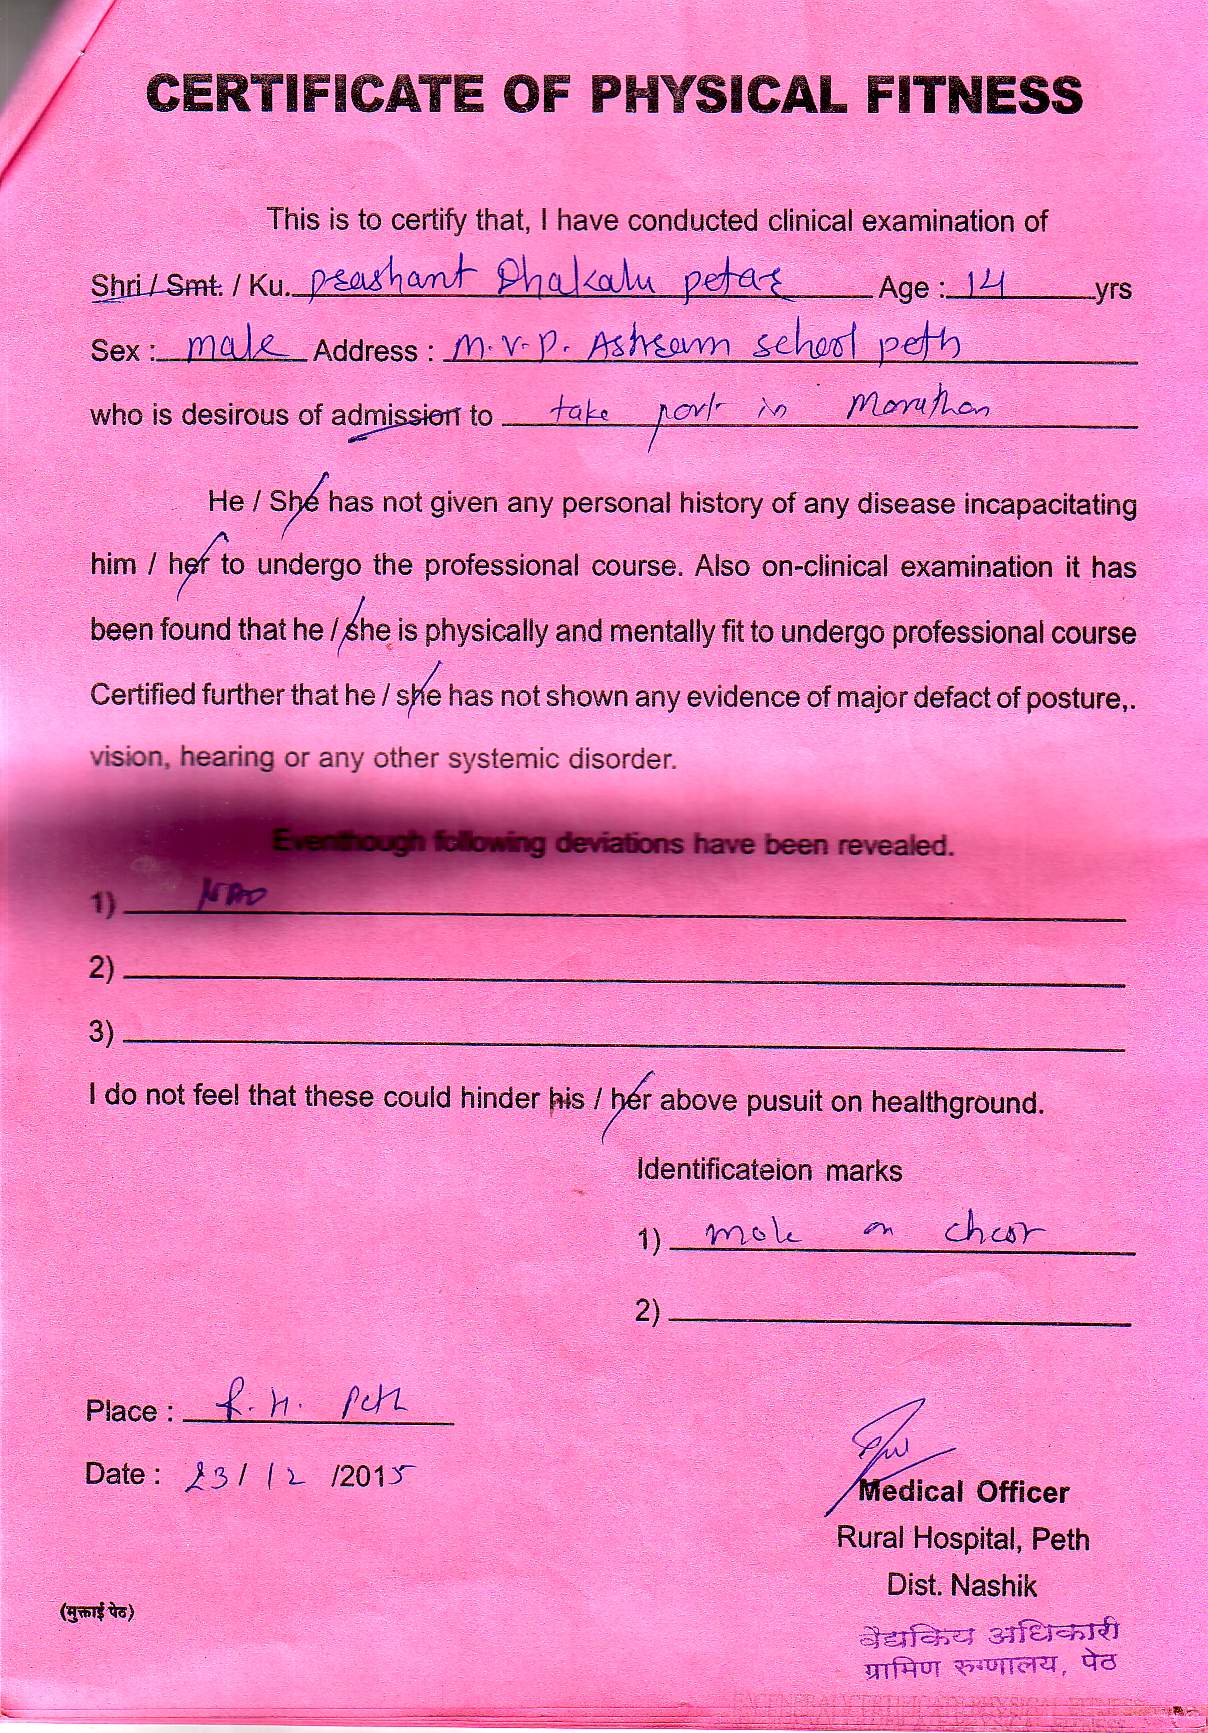 CERTIFICATE OF PHYSICAL FITNESS
This is to certify that, I have conducted clinical examination of
Shri / Smt. / Ku. Prashant Dhakalu petar Age : 14 yrs
Sex : male Address : m.v.p. Ashram school peth
who is desirous of admission to take part in Marathon
He / She has not given any personal history of any disease incapacitating
him / her to undergo the professional course. Also on-clinical examination it has
been found that he / she is physically and mentally fit to undergo professional course
Certified further that he / she has not shown any evidence of major defact of posture,.
vision, hearing or any other systemic disorder.
Eventhough following deviations have been revealed.
1) NAD
2)
3)
I do not feel that these could hinder his / her above pusuit on healthground.
Identificateion marks
1) mole on chest
2)
Place : R.H. Peth
Date : 23 / 12 /2015
Medical Officer
Rural Hospital, Peth
Dist. Nashik
(मुक्ताई पेठ)
वैद्यकिय अधिकारी
ग्रामिण रुग्णालय, पेठ